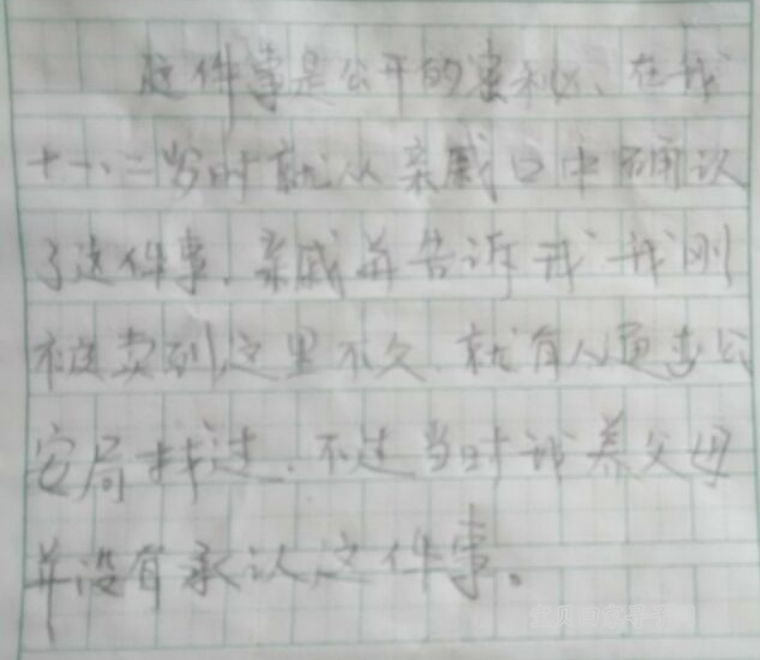 这件事是公开的秘密、在我
十一、二岁时就从亲戚口中确认
了这件事.亲戚并告诉我我刚
被卖到这里不久.就有人通过公
安局找过.不过当时我养父母
并没有承认这件事。
宝贝回家寻子网